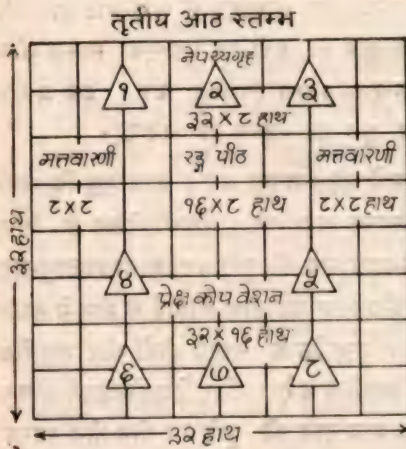 तृतीय आठ स्तम्भ
नेपथ्यगृह
१ २ ३
३२ × ८ हाथ
मत्तवारणी रङ्ग पीठ मत्तवारणी
८ × ८ १६ × ८ हाथ ८ × ८ हाथ
३२ हाथ
४ ५
प्रेक्ष कोप वेशन
३२ × १६ हाथ
६ ७ ८
३२ हाथ